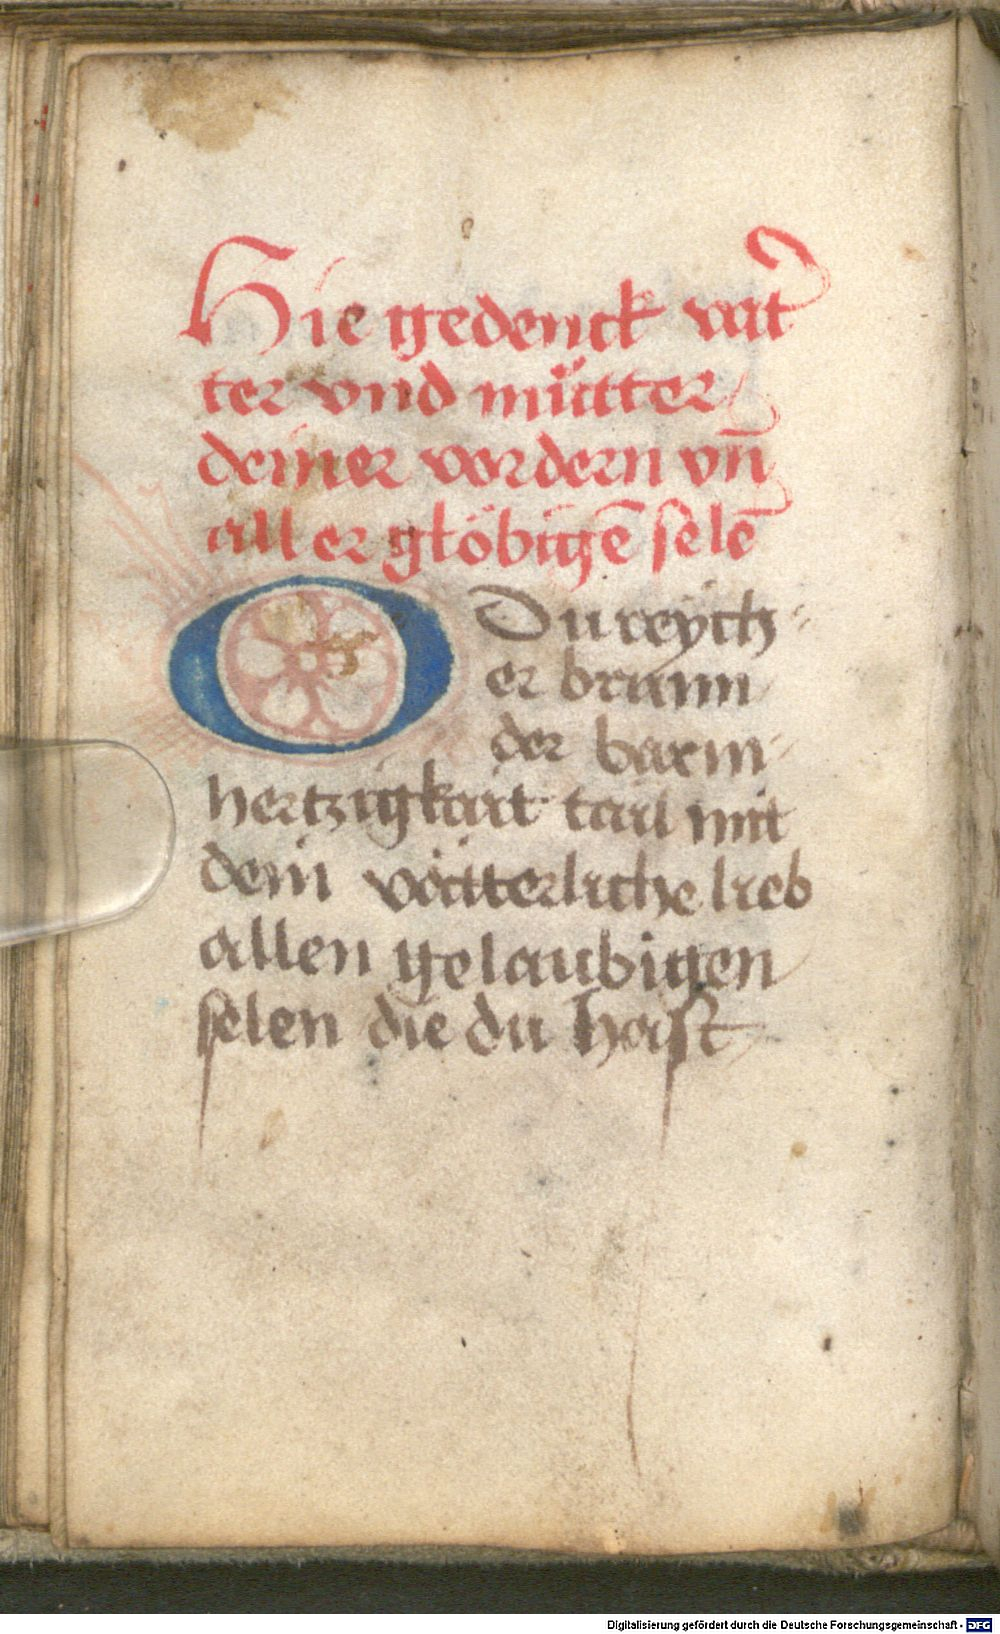 Hie gedenck vat
ter vnd můtter
deiner vordern vn̄
aller glöbigē selē
O Du reych-
er brunn
der barm-
hertzigkait tail mit
dein vätterliche lieb
allen gelaubigen
selen die du hast
Digitalisierung gefördert durch die Deutsche Forschungsgemeinschaft - DFG